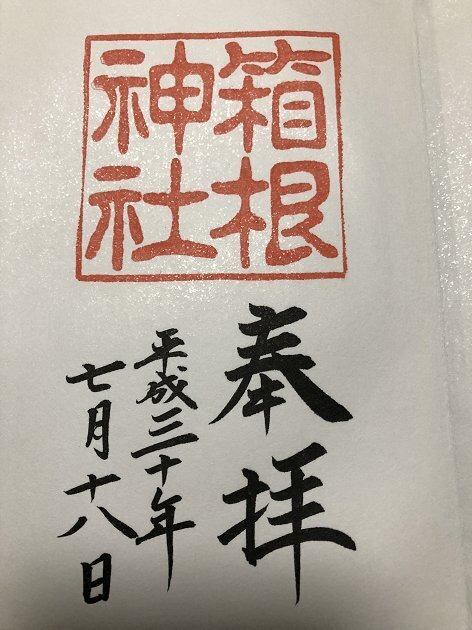 箱根
神社
奉拝
平成三十年
七月十八日